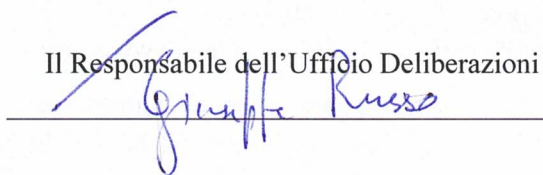 Il Responsabile dell’Ufficio Deliberazioni
Giuseppe Russo